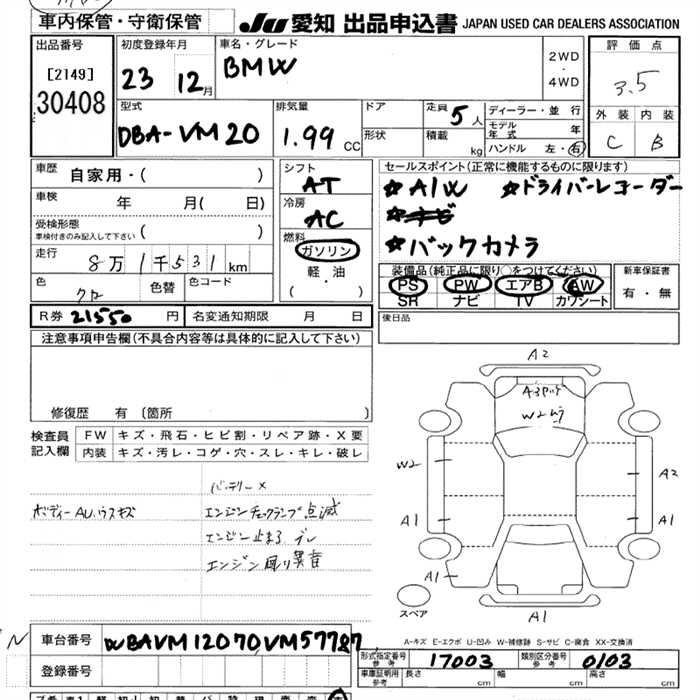 車内保管・守衛保管
JU 愛知 出品申込書 JAPAN USED CAR DEALERS ASSOCIATION
出品番号
[2149]
30408
初度登録年月
23 12月
車名・グレード
BMW
2WD
・
4WD
評価点
3.5
外装 内装
C B
型式
DBA-VM20
排気量
1.99 CC
ドア
形状
定員 5 人
積載 kg
ディーラー・並行
モデル年式 年
ハンドル 左・右
車歴
自家用・( )
車検 年 月( 日)
受検形態
車検付きのみ記入して下さい ( )
走行 8万1千531km
色 クロ
色替
色コード
シフト
AT
冷房
AC
燃料
ガソリン
軽・油
( ・ )
セールスポイント(正常に機能するものに限ります)
☆AIW ☆ドライバーレコーダー
☆バックカメラ
装備品(純正品に限り○をつけてください)
PS PW エアB AW
SR ナビ TV カワシート
新車保証書
有・無
R券 21550 円
名変通知期限 月 日
後日品
注意事項申告欄(不具合内容等は具体的に記入して下さい)
修復歴 有 (箇所 )
検査員
記入欄
FW キズ・飛石・ヒビ割・リペア跡・X要
内装 キズ・汚レ・コゲ・穴・スレ・キレ・破レ
バッテリーX
ボディーAUウスキズ
エンジンチェックランプ点滅
エンジン止まる ブレ
エンジン回り異音
A2
W2
A2
A1
A1
A1
A1
スペア
A-キズ E-エクボ U-凹み W-補修跡 S-サビ C-腐食 XX-交換済
車台番号
WBAVM12070VM57787
登録番号
形式指定番号
参考
17003
類別区分番号
参考
0103
車庫証明用
参考
長さ cm
幅 cm
高さ cm